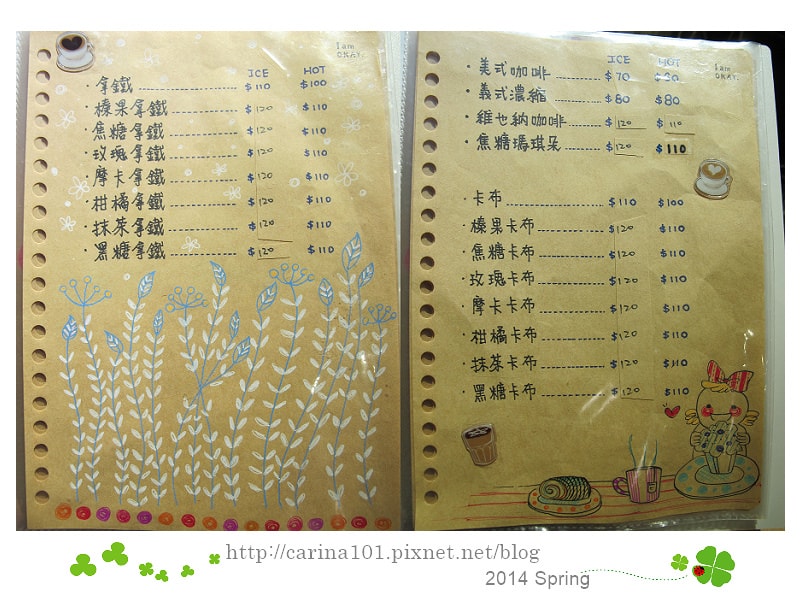 I am OKAY.
ICE HOT
·拿鐵 $110 $100
·榛果拿鐵 $120 $110
·焦糖拿鐵 $120 $110
·玫瑰拿鐵 $120 $110
·摩卡拿鐵 $120 $110
·柑橘拿鐵 $120 $110
·抹茶拿鐵 $120 $110
·黑糖拿鐵 $120 $110
I am OKAY.
ICE HOT
·美式咖啡 $70
·義式濃縮 $80 $80
·維也納咖啡 $120 $110
·焦糖瑪琪朵 $120 $110
·卡布 $110 $100
·榛果卡布 $120 $110
·焦糖卡布 $120 $110
·玫瑰卡布 $120 $110
·摩卡卡布 $120 $110
·柑橘卡布 $120 $110
·抹茶卡布 $120 $110
·黑糖卡布 $120 $110
http://carina101.pixnet.net/blog
2014 Spring